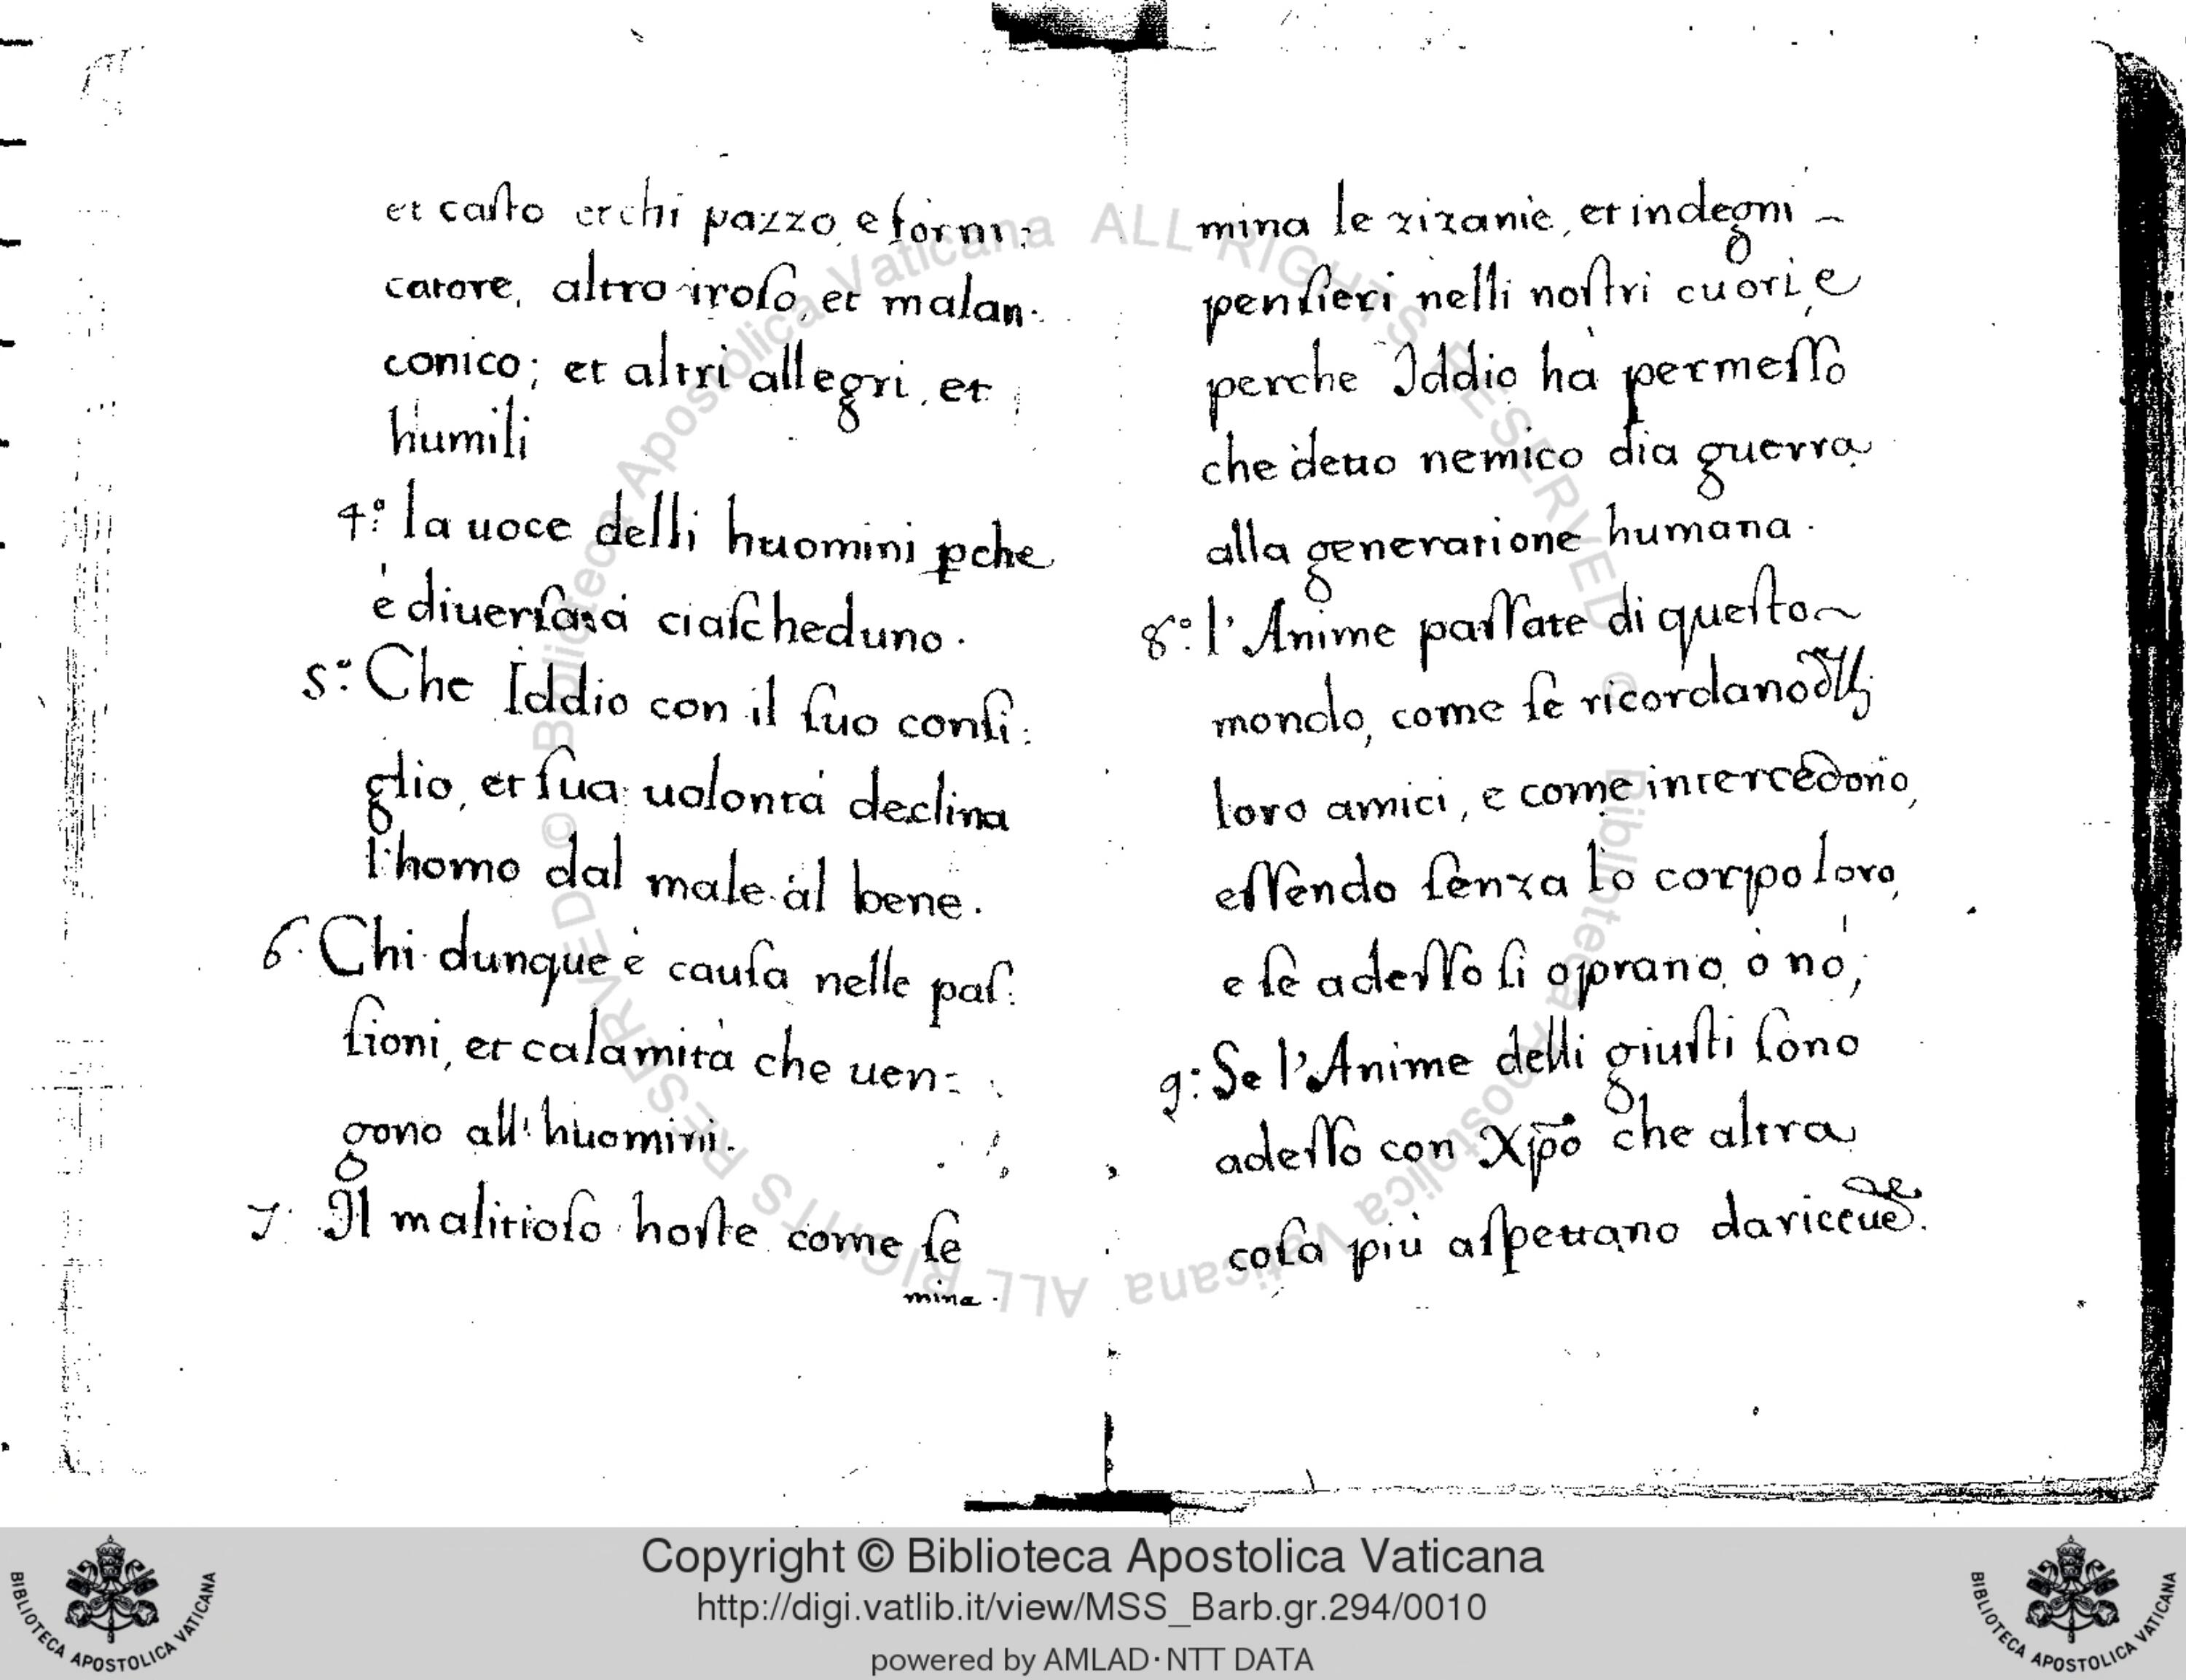 et casto et chi pazzo, e forni:
catore, altro iroso, et malan.
conico; et altri allegri, et
humili
4.º la uoce delli huomini pche
è diuersa à ciascheduno.
5.º Che Iddio con il suo consi:
glio, et sua uolontà declina
l'homo dal male al bene.
6. Chi dunque è causa nelle pas:
sioni, et calamità che uen=
gono all' huomini.
7. Il malitioso hoste come se
mina.
mina le zizanie, et indegni -
pensieri nelli nostri cuori, e
perche Iddio hà permesso
che detto nemico dia guerra
alla generatione humana.
8.º l'Anime passate di questo
mondo, come se ricordano dlli
loro amici, e come intercedono,
essendo senza lo corpo loro,
e se adesso si oprano, ò nò;
9: Se l'Anime delli giusti sono
adesso con Xp̄o che altra
cosa più aspettano da riceuere.
Copyright © Biblioteca Apostolica Vaticana
http://digi.vatlib.it/view/MSS_Barb.gr.294/0010
powered by AMLAD·NTT DATA
BIBLIOTECA APOSTOLICA VATICANA
BIBLIOTECA APOSTOLICA VATICANA
© Biblioteca Apostolica Vaticana ALL RIGHTS RESERVED © Biblioteca Apostolica Vaticana ALL RIGHTS RESERVED